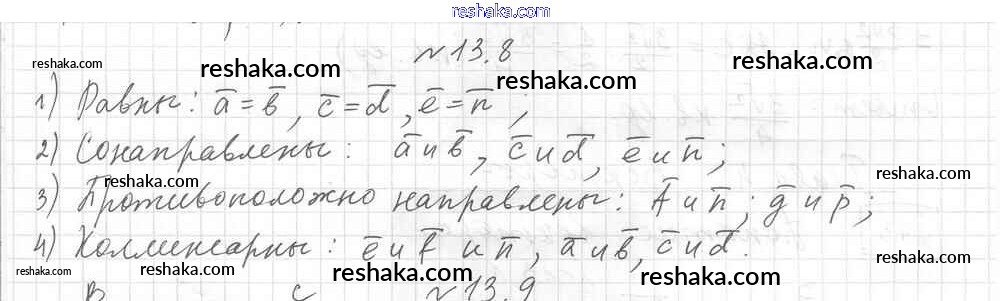 reshaka.com
№ 13.8
reshaka.com reshaka.com reshaka.com
1) Равны: a̅ = b̅, c̅ = d̅, e̅ = n̅;
2) Сонаправлены: a̅ и b̅, c̅ и d̅, e̅ и n̅;
reshaka.com reshaka.com reshaka.com
3) Противоположно направлены: f̅ и n̅; g̅ и p̅;
4) Коллинеарны: e̅ и f̅ и n̅, a̅ и b̅, c̅ и d̅.
reshaka.com reshaka.com reshaka.com reshaka.com
B C № 13.9